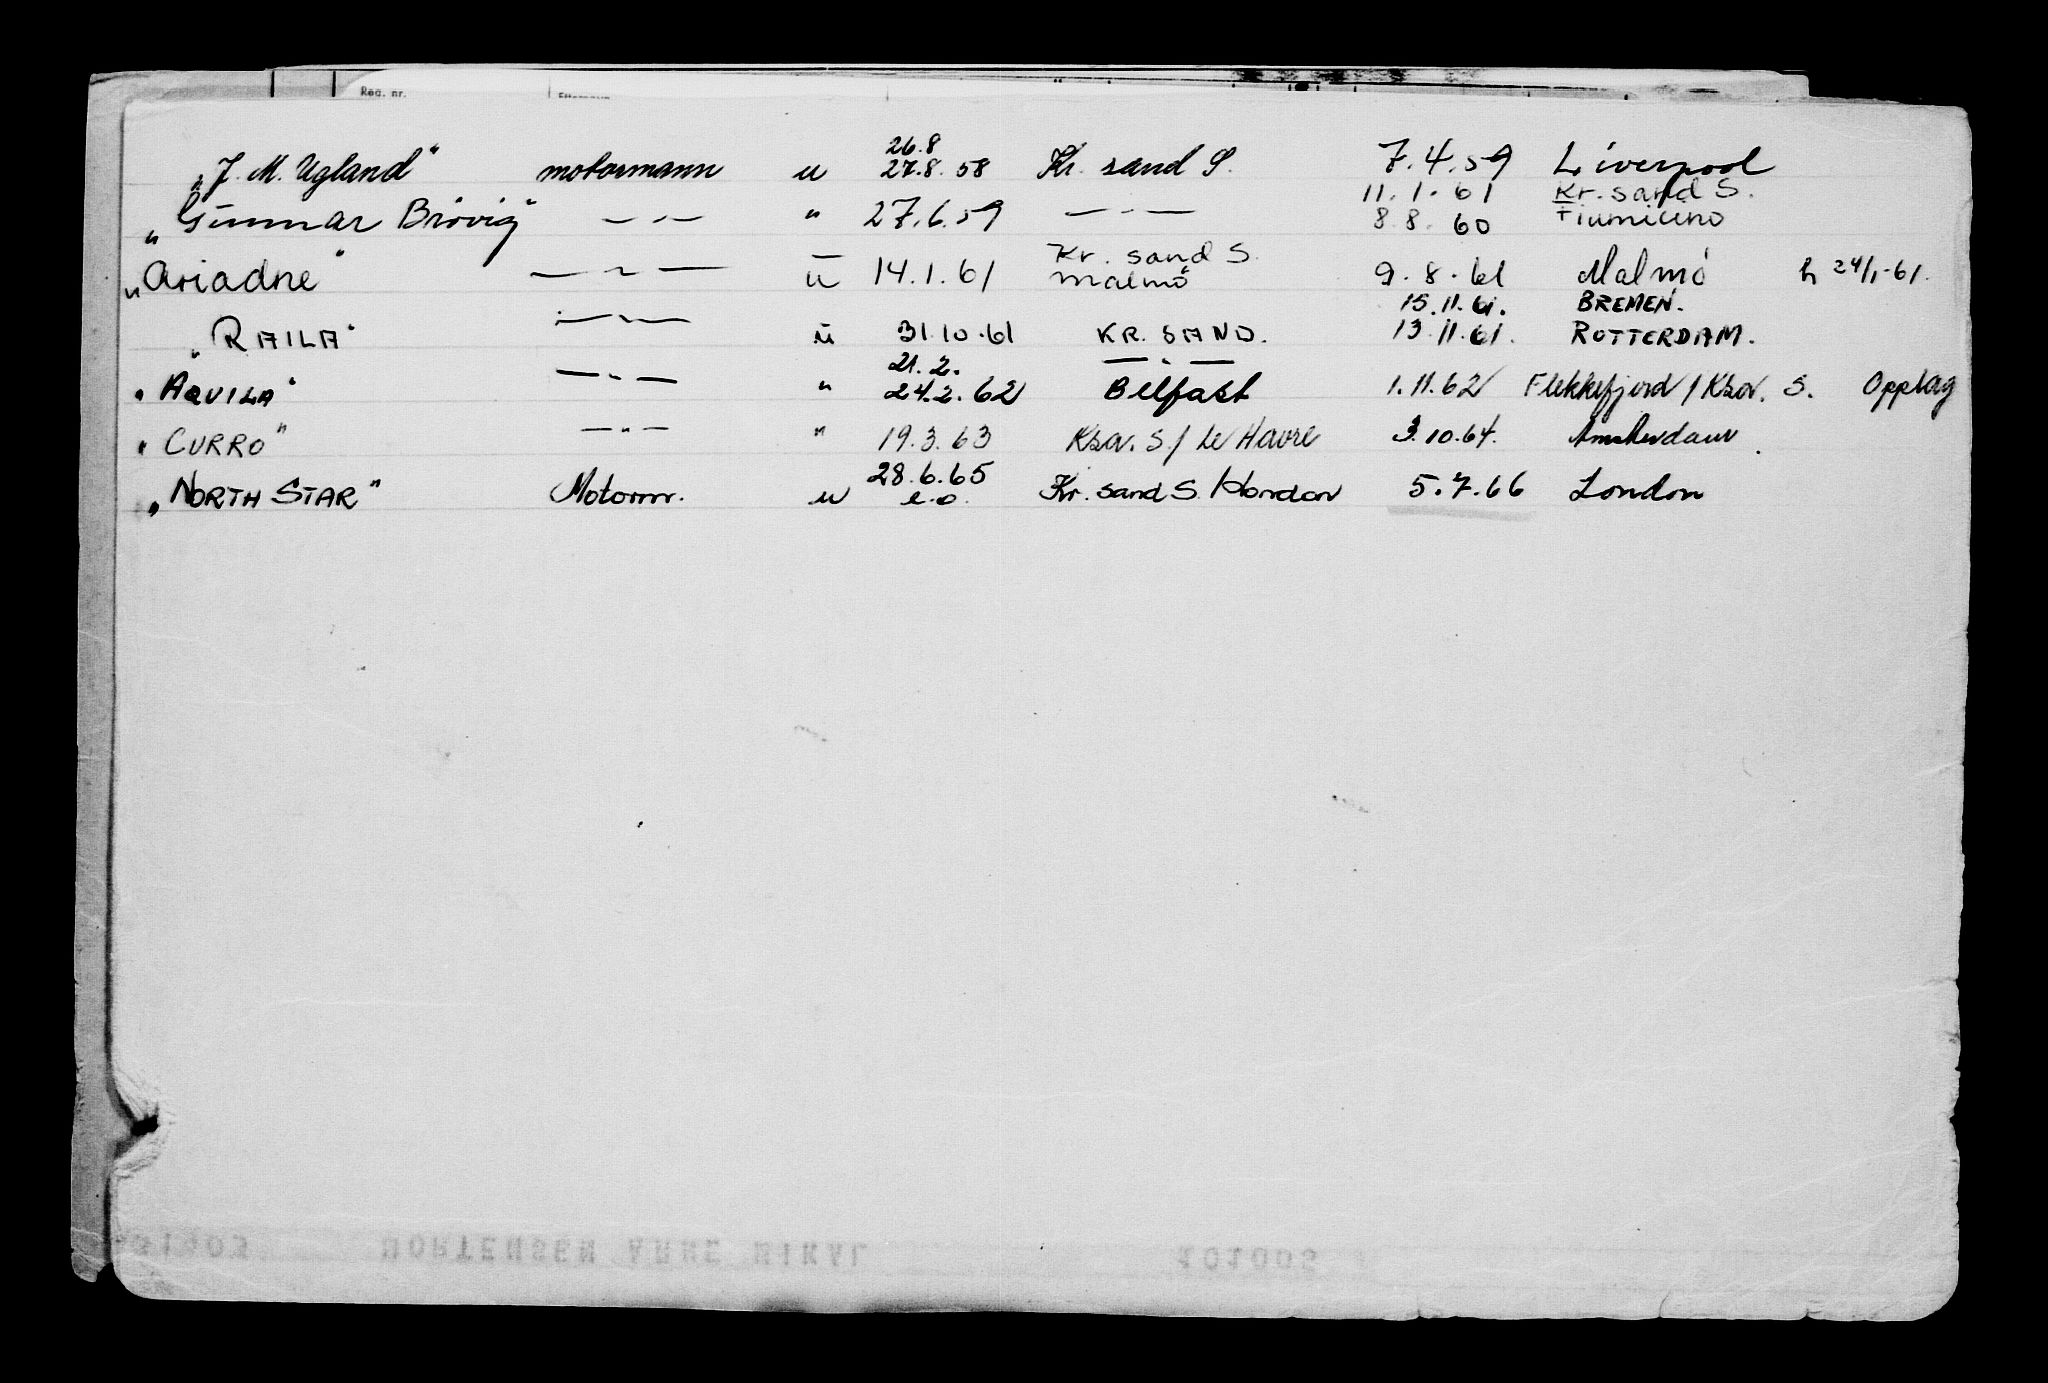 Reg. nr.
26.8
„J. M. Ugland" motormann u 27.8.58 Kr. sand S. 7.4.59 Liverpool
11.1.61 Kr. sand S.
„Gunnar Brøvig" —"— " 27.6.59 —"— 8.8.60 Fiumicino
Kr. sand S.
„Ariadne" —"— u 14.1.61 Malmö 9.8.61 Malmö h 24/1-61.
15.11.61. BREMEN.
„RAILA" —"— u 31.10.61 KR. SAND. 13.11.61. ROTTERDAM.
21.2. —"—
„AQVILA" —"— " 24.2.62 Belfast 1.11.62 Flekkefjord / Ksa. S. Opplag
„CURRO" —"— " 19.3.63 Ksa. S / Le Havre 3.10.64. Amsterdam.
28.6.65
„NORTH STAR" Motorm. u e.o. Kr. sand S. / London 5.7.66 London
MORTENSEN ARNE MIKAL 101005